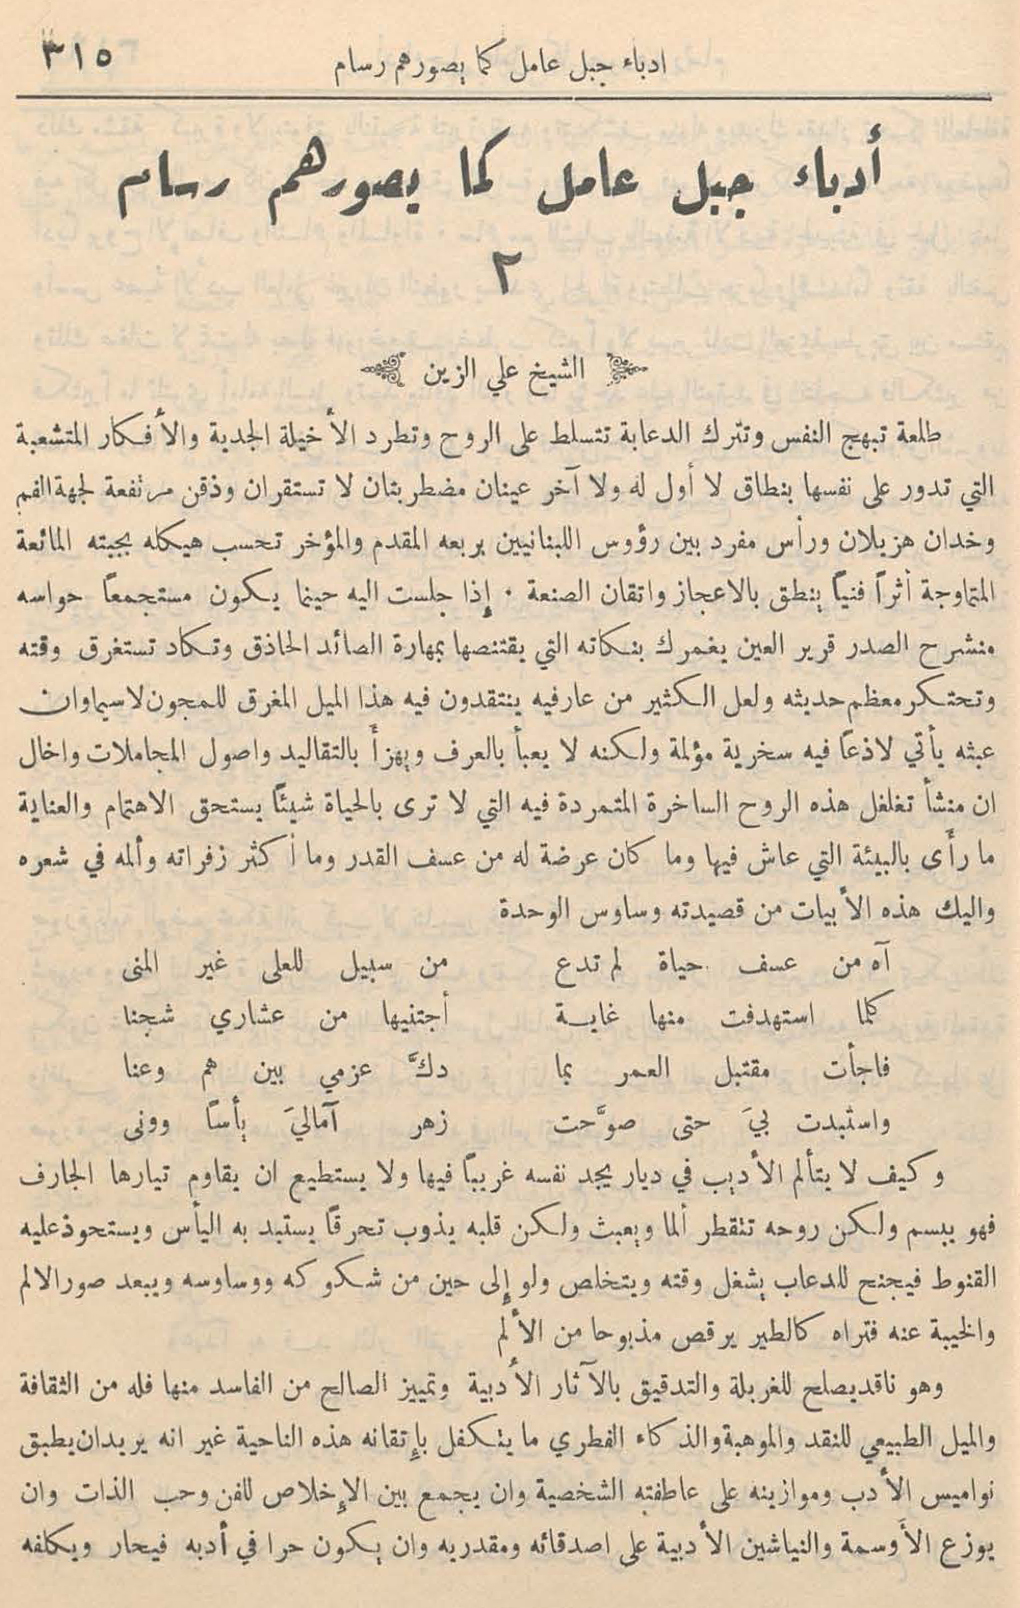 ادباء جبل عامل كما يصورهم رسام ٣١٥
أدباء جبل عامل كما يصورهم رسام
٢
الشيخ علي الزين
طلعة تبهج النفس وتترك الدعابة تتسلط على الروح وتطرد الأخيلة الجدية والأفكار المتشعبة
التي تدور على نفسها بنطاق لا أول له ولا آخر عينان مضطربتان لا تستقران وذقن مرتفعة لجهة الفم
وخدان هزيلان ورأس مفرد بين رؤوس اللبنانيين بربعه المقدم والمؤخر تحسب هيكله بجبته المائعة
المتماوجة أثراً فنياً ينطق بالاعجاز واتقان الصنعة . إذا جلست اليه حينما يكون مستجمعاً حواسه
منشرح الصدر قرير العين يغمرك بنكاته التي يقتنصها بمهارة الصائد الحاذق وتكاد تستغرق وقته
وتحتكر معظم حديثه ولعل الكثير من عارفيه ينتقدون فيه هذا الميل المغرق للمجون لاسيما وان
عبثه يأتي لاذعاً فيه سخرية مؤلمة ولكنه لا يعبأ بالعرف ويهزأ بالتقاليد واصول المجاملات واخال
ان منشأ تغلغل هذه الروح الساخرة المتمردة فيه التي لا ترى بالحياة شيئاً يستحق الاهتمام والعناية
ما رأى بالبيئة التي عاش فيها وما كان عرضة له من عسف القدر وما أكثر زفراته وألمه في شعره
واليك هذه الأبيات من قصيدته وساوس الوحدة
آه من عسف حياة لم تدع من سبيل للعلى غير المنى
كلما استهدفت منها غاية أجتنيها من عشاري شجنا
فاجأت مقتبل العمر بما دكَّ عزمي بين هم وعنا
واستبدت بيَ حتى صوَّحت زهر آماليَ يأسًا وونى
وكيف لا يتألم الأديب في ديار يجد نفسه غريبًا فيها ولا يستطيع ان يقاوم تيارها الجارف
فهو يبسم ولكن روحه تتقطر ألما ويعبث ولكن قلبه يذوب تحرقًا يستبد به اليأس ويستحوذ عليه
القنوط فيجنح للدعاب يشغل وقته ويتخلص ولو إلى حين من شكوكه ووساوسه ويبعد صور الالم
والخيبة عنه فتراه كالطير يرقص مذبوحا من الألم
وهو ناقد يصلح للغربلة والتدقيق بالآثار الأدبية وتمييز الصالح من الفاسد منها فله من الثقافة
والميل الطبيعي للنقد والموهبة والذكاء الفطري ما يتكفل بإتقانه هذه الناحية غير انه يريد ان يطبق
نواميس الأدب وموازينه على عاطفته الشخصية وان يجمع بين الإخلاص للفن وحب الذات وان
يوزع الأوسمة والنياشين الأدبية على اصدقائه ومقدريه وان يكون حرا في أدبه فيحار ويكلفه